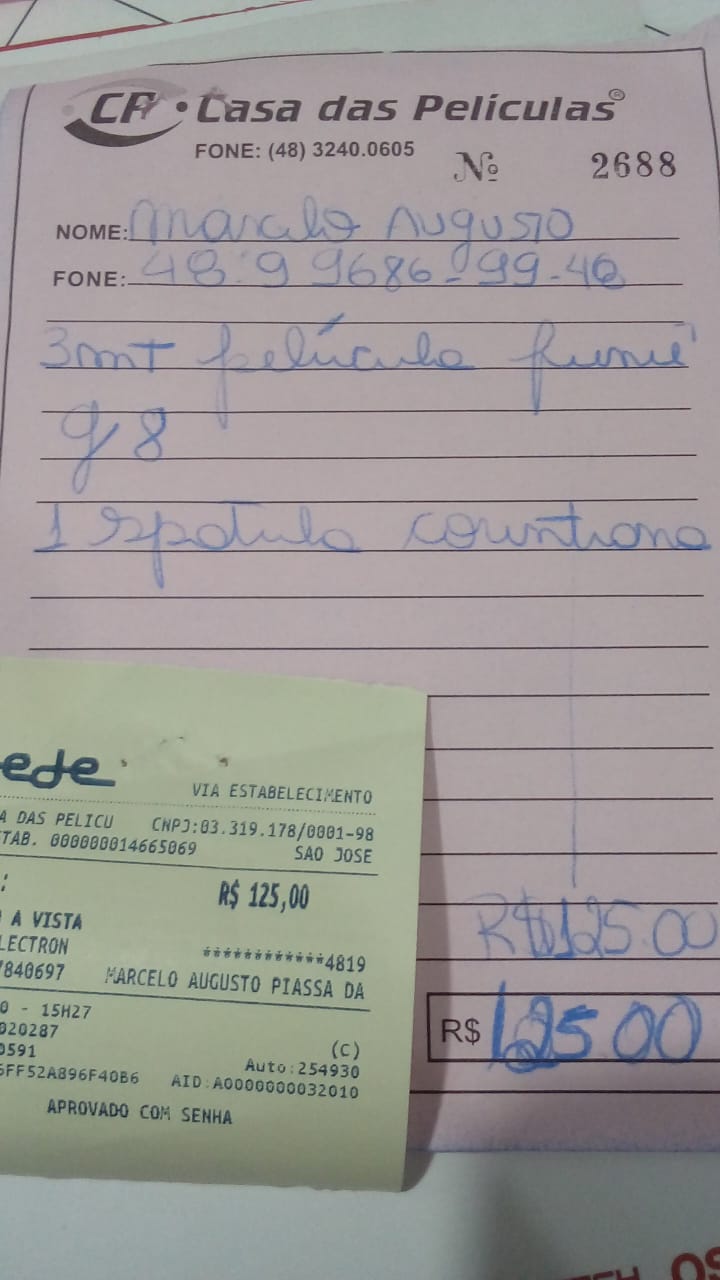 CP • Casa das Películas®
FONE: (48) 3240.0605
Nº 2688
NOME: Marcelo Augusto
FONE: 48.9 9686-99-46
3mt película fumê
g8
1 espatula
R$ 125.00
R$ 125 00
ede
VIA ESTABELECIMENTO
A DAS PELICU CNPJ:03.319.178/0001-98
TAB. 000000014665069 SAO JOSE
: R$ 125,00
A VISTA
LECTRON ************4819
7840697 MARCELO AUGUSTO PIASSA DA
0 - 15H27
020287 (C)
0591 Auto:254930
5FF52A896F40B6 AID:A0000000032010
APROVADO COM SENHA